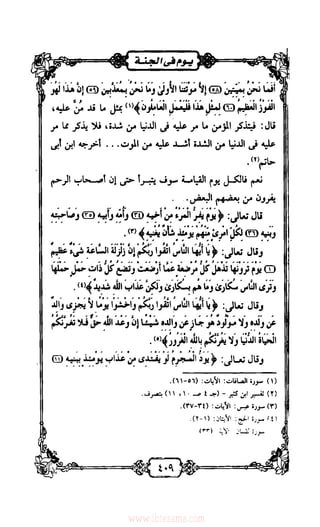 يوم فى الجنة
أَفَمَا نَحْنُ بِمَيِّتِينَ ﴿٥٨﴾ إِلَّا مَوْتَتَنَا الْأُولَىٰ وَمَا نَحْنُ بِمُعَذَّبِينَ ﴿٥٩﴾ إِنَّ هَٰذَا لَهُوَ
الْفَوْزُ الْعَظِيمُ ﴿٦٠﴾ لِمِثْلِ هَٰذَا فَلْيَعْمَلِ الْعَامِلُونَ﴾(١) بمثل ما قد مُنَّ عليه،
قال: فيتذكر المؤمن ما مر عليه فى الدنيا من شدة، فلا يذكر مما مر
عليه فى الدنيا من الشدة أشد عليه من الموت... أخرجه ابن أبى
حاتم(٢).
نعم فالكل يوم القيامة سوف يتبرأ حتى إن أصحاب الرحم
يفرون من بعضهم البعض..
قال تعالى: ﴿ يَوْمَ يَفِرُّ الْمَرْءُ مِنْ أَخِيهِ ﴿٣٤﴾ وَأُمِّهِ وَأَبِيهِ ﴿٣٥﴾ وَصَاحِبَتِهِ
وَبَنِيهِ ﴿٣٦﴾ لِكُلِّ امْرِئٍ مِّنْهُمْ يَوْمَئِذٍ شَأْنٌ يُغْنِيهِ﴾(٣).
وقال تعالى: ﴿ يَا أَيُّهَا النَّاسُ اتَّقُوا رَبَّكُمْ إِنَّ زَلْزَلَةَ السَّاعَةِ شَيْءٌ عَظِيمٌ
﴿١﴾ يَوْمَ تَرَوْنَهَا تَذْهَلُ كُلُّ مُرْضِعَةٍ عَمَّا أَرْضَعَتْ وَتَضَعُ كُلُّ ذَاتِ حَمْلٍ حَمْلَهَا
وَتَرَى النَّاسَ سُكَارَىٰ وَمَا هُم بِسُكَارَىٰ وَلَٰكِنَّ عَذَابَ اللَّهِ شَدِيدٌ﴾(٤).
وقال تعالى: ﴿ يَا أَيُّهَا النَّاسُ اتَّقُوا رَبَّكُمْ وَاخْشَوْا يَوْمًا لَّا يَجْزِي وَالِدٌ
عَن وَلَدِهِ وَلَا مَوْلُودٌ هُوَ جَازٍ عَن وَالِدِهِ شَيْئًا إِنَّ وَعْدَ اللَّهِ حَقٌّ فَلَا تَغُرَّنَّكُمُ
الْحَيَاةُ الدُّنْيَا وَلَا يَغُرَّنَّكُم بِاللَّهِ الْغَرُورُ﴾(٥).
وقال تعالى: ﴿ يَوَدُّ الْمُجْرِمُ لَوْ يَفْتَدِي مِنْ عَذَابِ يَوْمِئِذٍ بِبَنِيهِ ﴿١١﴾
(١) سورة الصافات: الآيات: (٥٦-٦١).
(٢) تفسير ابن كثير - (جـ ٤ صـ ١٠، ١١) بتصرف.
(٣) سورة عبس: الآيات: (٣٤-٣٧).
(٤) سورة الحج: الآيتان: (١-٢).
سورة لقمان الآية (٣٣)
٤٠٩
www.ibtesama.com